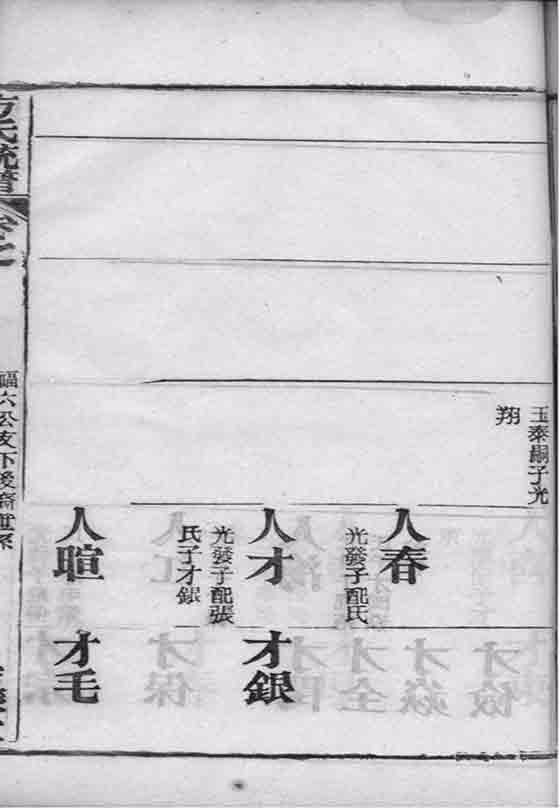 玉泰嗣子光
翔
人春
光發子配氏
人才
光發子配張
氏子才銀
才銀
人暄
才毛
方氏統譜
福六公支下後裔世系